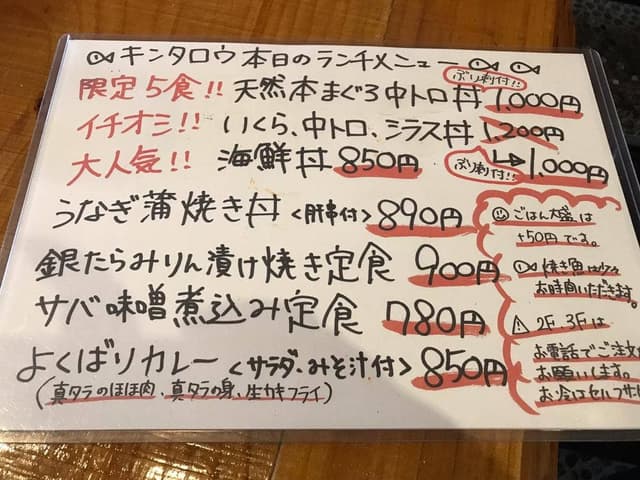 キンタロウ 本日のランチメニュー
限定5食!! 天然本まぐろ中トロ丼 1,000円
ぶり刺付!!
イチオシ!! いくら、中トロ、シラス丼 1,200円
ぶり刺付!! 1,000円
大人気!! 海鮮丼 850円
うなぎ蒲焼き丼 <肝串付> 890円
銀たらみりん漬け焼き定食 900円
サバ味噌煮込み定食 780円
よくばりカレー <サラダ、みそ汁付> 850円
(真タラのほほ肉、真タラの身、生カキフライ)
ごはん大盛は
+50円です。
焼き魚は少々
お時間いただきます。
2F、3Fは
お電話でご注文
お願いします。
お会はセルフサ